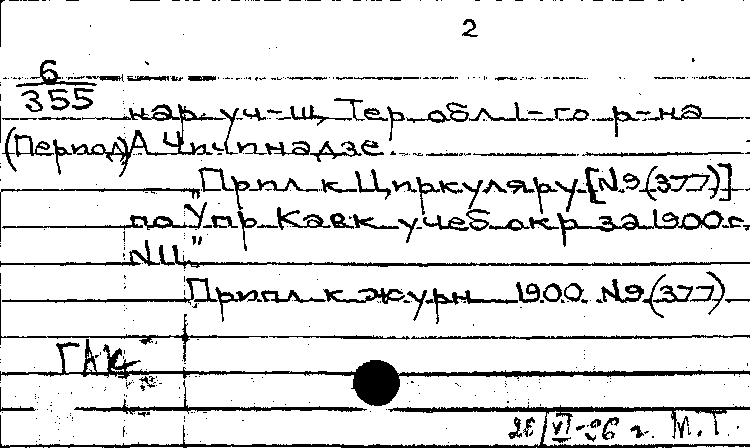 2
6
355
нар. уч-щ, Тер. обл. 1-го р-на
(Период) А. Чичинадзе.
„Прил к Циркуляру [N9 (377)]
по Упр Кавк учеб окр за 1900г.
N11"
Прил к журн 1900 N9 (377)
ГАК
26/VI-96 г. М.Т.